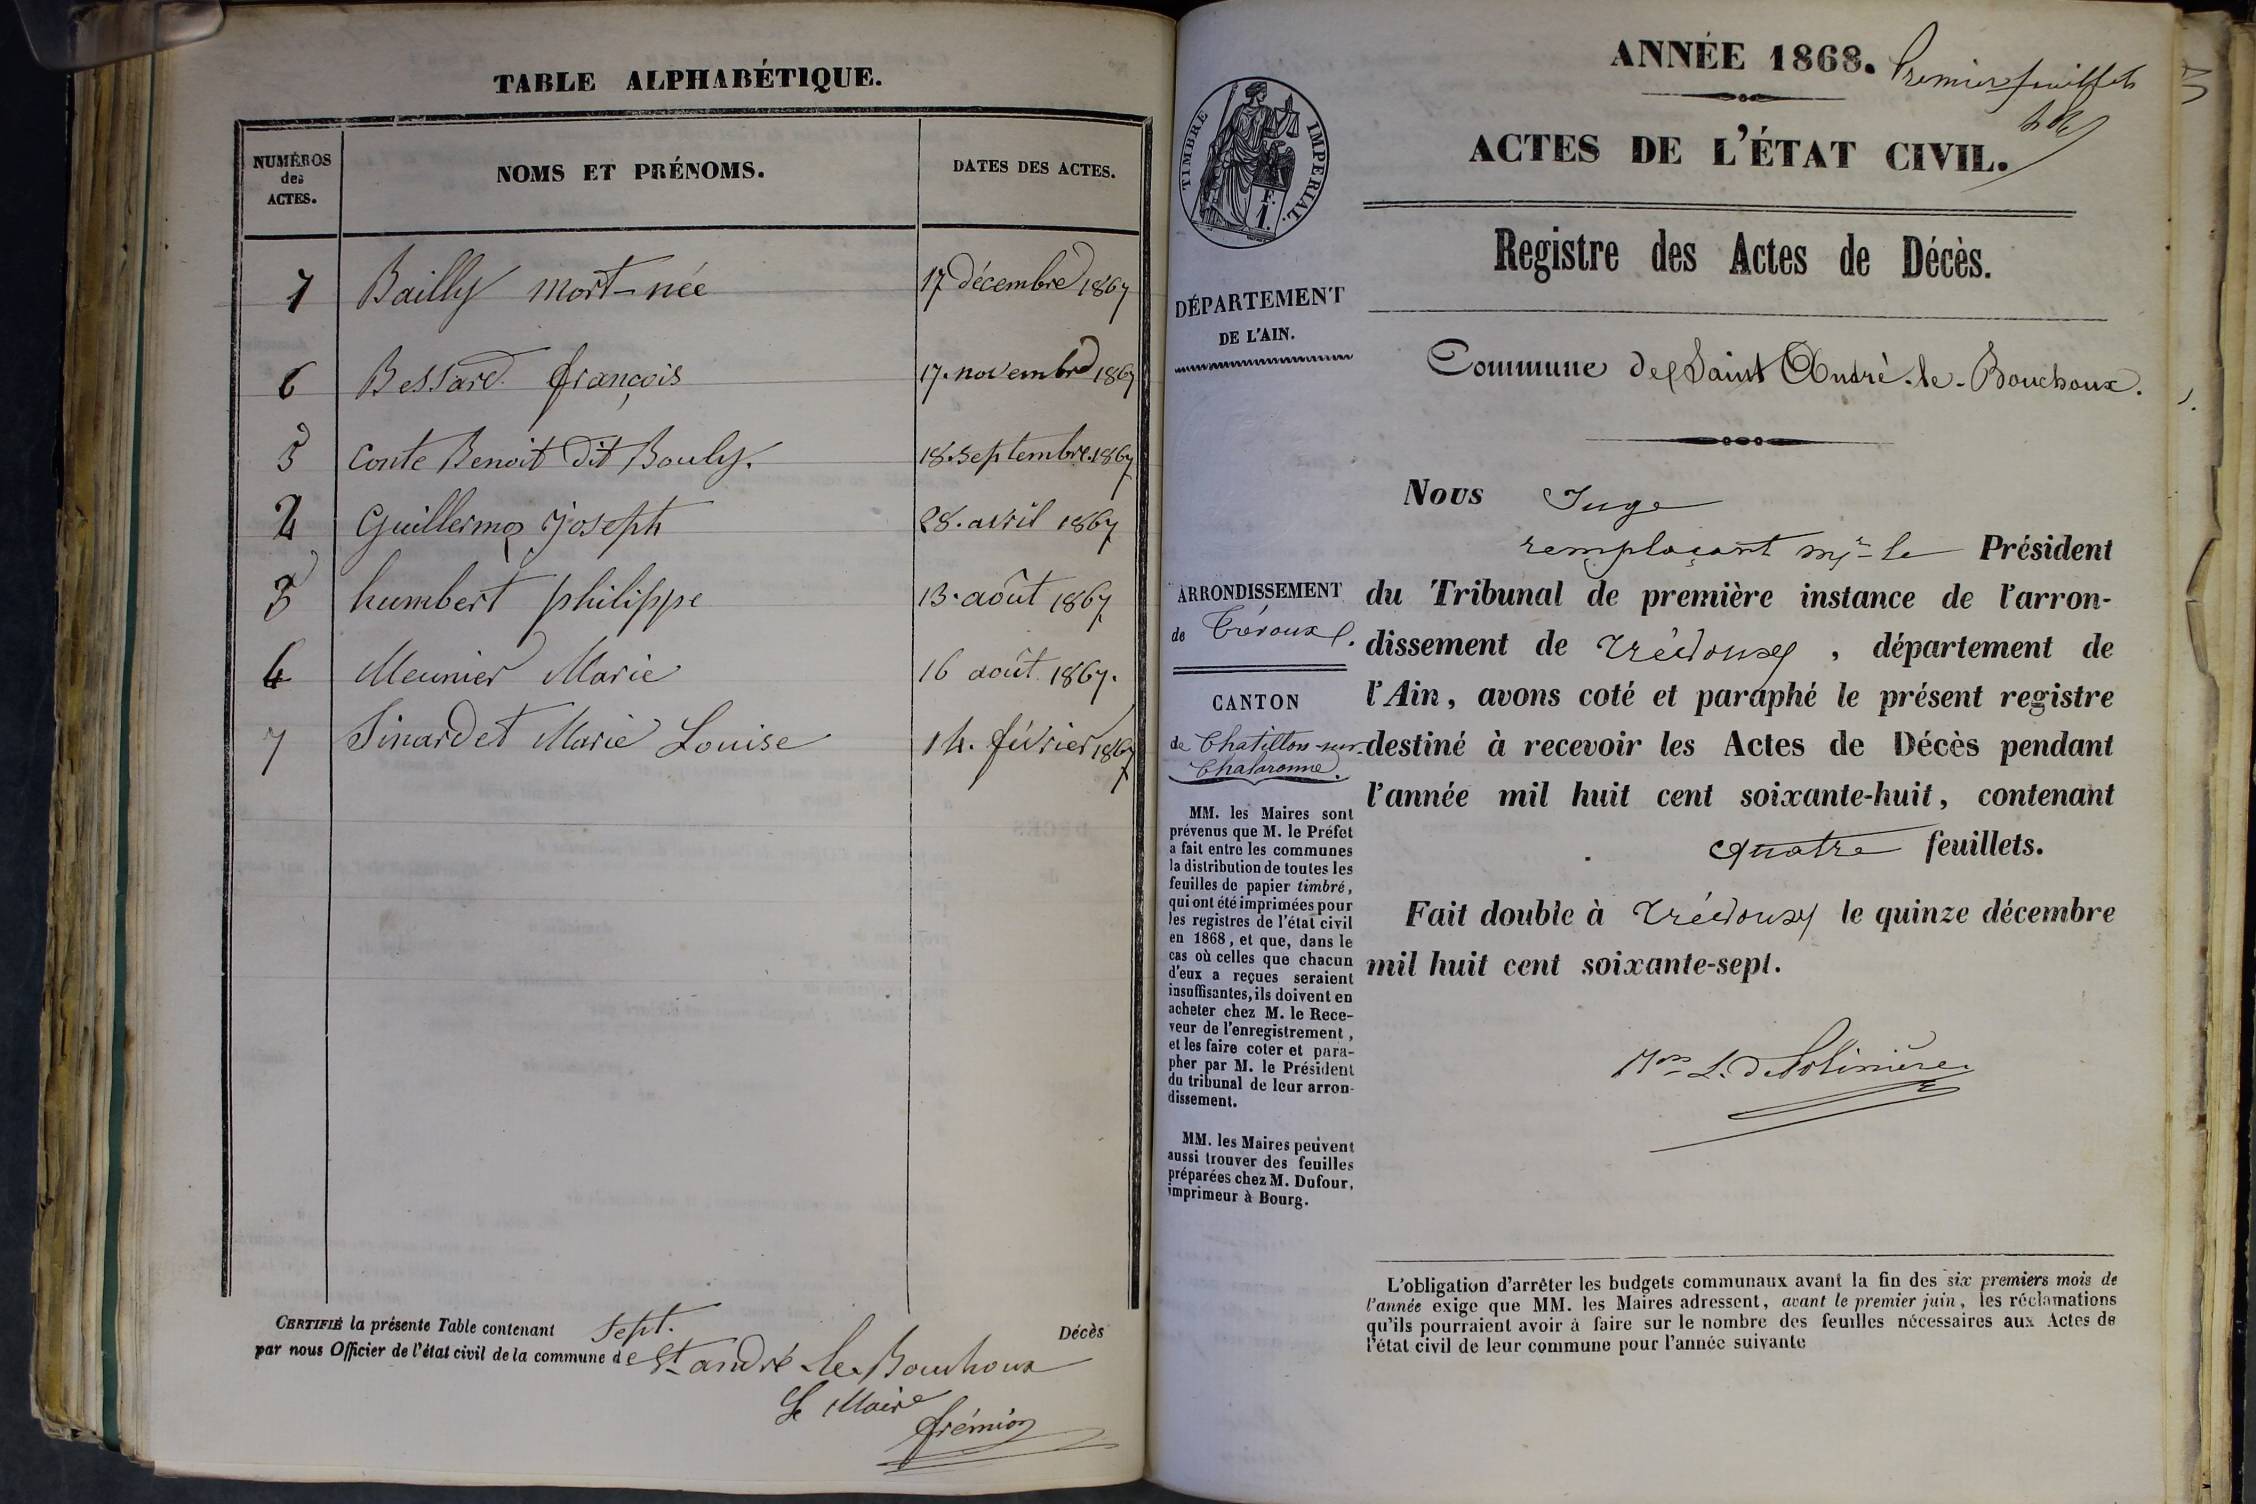 TABLE ALPHABÉTIQUE.
NUMÉROS des ACTES.
NOMS ET PRÉNOMS.
DATES DES ACTES.
7 Bailly mort-née 17 décembre 1867
6 Bessard françois 17. novembre 1867
5 Conte Benoit dit Bouly. 18. septembre. 1867
2 Guillermoz joseph 28. avril 1867
3 humbert philippe 13. août 1867
4 Meunier Marie 16 août 1867.
1 Sinardet Marie Louise 14. février 1867
CERTIFIÉ la présente Table contenant sept. Décès
par nous Officier de l'état civil de la commune de St andré-le-Bouchoux
Le Maire
frémion
ANNÉE 1868.
Premier feuillet
ACTES DE L'ÉTAT CIVIL.
TIMBRE IMPERIAL.
F.
1.
Registre des Actes de Décès.
DÉPARTEMENT
DE L'AIN.
Commune de Saint André-le-Bouchoux.
Nous Juge
remplaçant Mr le Président
du Tribunal de première instance de l'arron-
dissement de Trévoux, département de
l'Ain, avons coté et paraphé le présent registre
destiné à recevoir les Actes de Décès pendant
l'année mil huit cent soixante-huit, contenant
quatre feuillets.
Fait double à Trévoux le quinze décembre
mil huit cent soixante-sept.
ARRONDISSEMENT
de Trévoux.
CANTON
de Chatillon-sur-
Chalaronne.
MM. les Maires sont
prévenus que M. le Préfet
a fait entre les communes
la distribution de toutes les
feuilles de papier timbré,
qui ont été imprimées pour
les registres de l'état civil
en 1868, et que, dans le
cas où celles que chacun
d'eux a reçues seraient
insuffisantes, ils doivent en
acheter chez M. le Rece-
veur de l'enregistrement,
et les faire coter et para-
pher par M. le Président
du tribunal de leur arron-
dissement.
MM. les Maires peuvent
aussi trouver des feuilles
préparées chez M. Dufour,
imprimeur à Bourg.
L'obligation d'arrêter les budgets communaux avant la fin des six premiers mois de
l'année exige que MM. les Maires adressent, avant le premier juin, les réclamations
qu'ils pourraient avoir à faire sur le nombre des feuilles nécessaires aux Actes de
l'état civil de leur commune pour l'année suivante